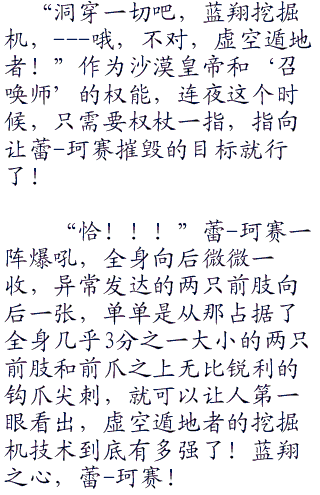 “洞穿一切吧，蓝翔挖掘
机，---哦，不对，虚空遁地
者！”作为沙漠皇帝和‘召
唤师’的权能，连夜这个时
候，只需要权杖一指，指向
让蕾-珂赛摧毁的目标就行
了！
“恰！！！”蕾-珂赛一
阵爆吼，全身向后微微一
收，异常发达的两只前肢向
后一张，单单是从那占据了
全身几乎3分之一大小的两只
前肢和前爪之上无比锐利的
钩爪尖刺，就可以让人第一
眼看出，虚空遁地者的挖掘
机技术到底有多强了！蓝翔
之心，蕾-珂赛！